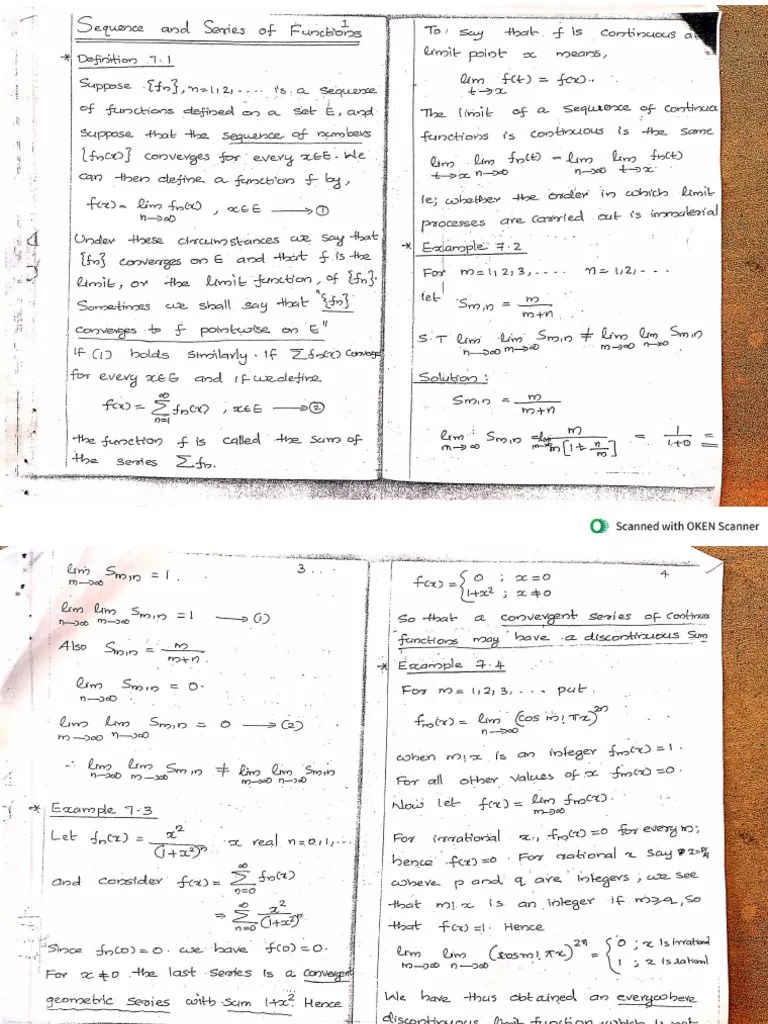 Sequence and Series of Functions
1
* Definition 7.1
Suppose {fn}, n=1,2,.... is a sequence
of functions defined on a set E, and
suppose that the sequence of numbers
{fn(x)} converges for every x∈E. We
can then define a function f by,
f(x) = lim n→∞ fn(x), x∈E ——→ ①
Under these circumstances we say that
{fn} converges on E and that f is the
limit, or the limit function, of {fn}.
Sometimes we shall say that "{fn}
converges to f pointwise on E"
if (1) holds similarly. If Σfn(x) converge
for every x∈E and if we define
f(x) = ∞ Σ n=1 fn(x), x∈E ——→ ②
the function f is called the sum of
the series Σfn.
To say that f is continuous a
limit point x means,
lim t→x f(t) = f(x)..
The limit of a sequence of continua
functions is continuous is the same
lim t→x lim n→∞ fn(t) - lim n→∞ lim t→x fn(t)
ie; whether the order in which limit
processes are carried out is immaterial
* Example 7.2
For m=1,2,3,.... n=1,2,...
let Sm,n = m/m+n
S.T lim n→∞ lim m→∞ Sm,n ≠ lim m→∞ lim n→∞ Sm,n
Solution:
Sm,n = m/m+n
lim m→∞ Sm,n = lim m→∞ m/m[1+n/m] = 1/1+0 =
Scanned with OKEN Scanner
3...
lim m→∞ Sm,n = 1.
lim n→∞ lim m→∞ Sm,n = 1 ——→ (1)
Also Sm,n = m/m+n
lim n→∞ Sm,n = 0.
lim m→∞ lim n→∞ Sm,n = 0 ——→ (2)
∴ lim n→∞ lim m→∞ Sm,n ≠ lim m→∞ lim n→∞ Sm,n
* Example 7.3
Let fn(x) = x²/(1+x²)ⁿ x real n=0,1,...
and consider f(x) = ∞ Σ n=0 fn(x)
= ∞ Σ n=0 x²/(1+x²)ⁿ
Since fn(0)=0. we have f(0)=0.
For x≠0 the last series is a convergent
geometric series with sum 1+x² Hence
4
f(x) = {0 ; x=0
1+x² ; x≠0
So that a convergent series of continua
functions may have a discontinuous sum
* Example 7.4
For m=1,2,3,... put
fm(x) = lim n→∞ (cos m! πx)²ⁿ
when m!x is an integer fm(x)=1.
For all other values of x fm(x)=0.
Now let f(x) = lim m→∞ fm(x).
For irrational x, fm(x)=0 for every m;
hence f(x)=0. For rational x say x=p/q
where p and q are integers, we see
that m!x is an integer if m≥q, so
that f(x)=1. Hence
lim m→∞ lim n→∞ (cosm! πx)²ⁿ = {0 ; x is irrational
1 ; x is rational
We have thus obtained an everywhere
discontinuous limit function which is not